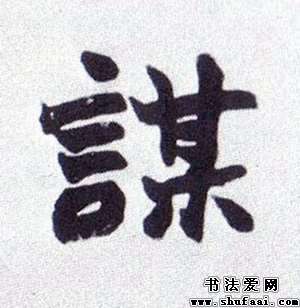 謀
书法爱网
www.shufaai.com